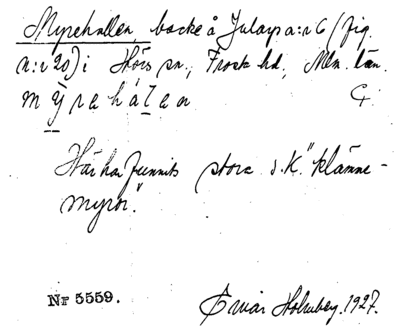 Myrehallen, backe å Jularp a:r 6 (fig.
n:r 20) i Hörs sn., Frosta hd., Mlm. län.
mýrehàlen
Här ha funnits stora s.k. "klämme-
myror."
Nr 5559. Einar Holmberg. 1927.